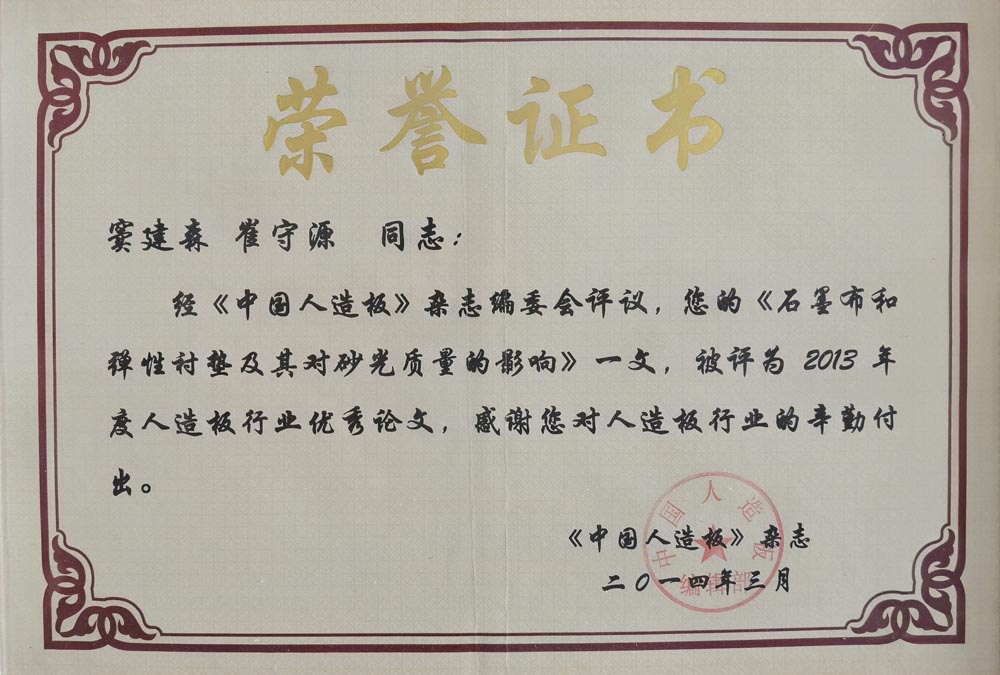 荣誉证书
窦建森 崔守源 同志：
经《中国人造板》杂志编委会评议，您的《石墨布和
弹性衬垫及其对砂光质量的影响》一文，被评为 2013 年
度人造板行业优秀论文，感谢您对人造板行业的辛勤付
出。
中国人造板
《中国人造板》杂志
编辑部
二〇一四年三月